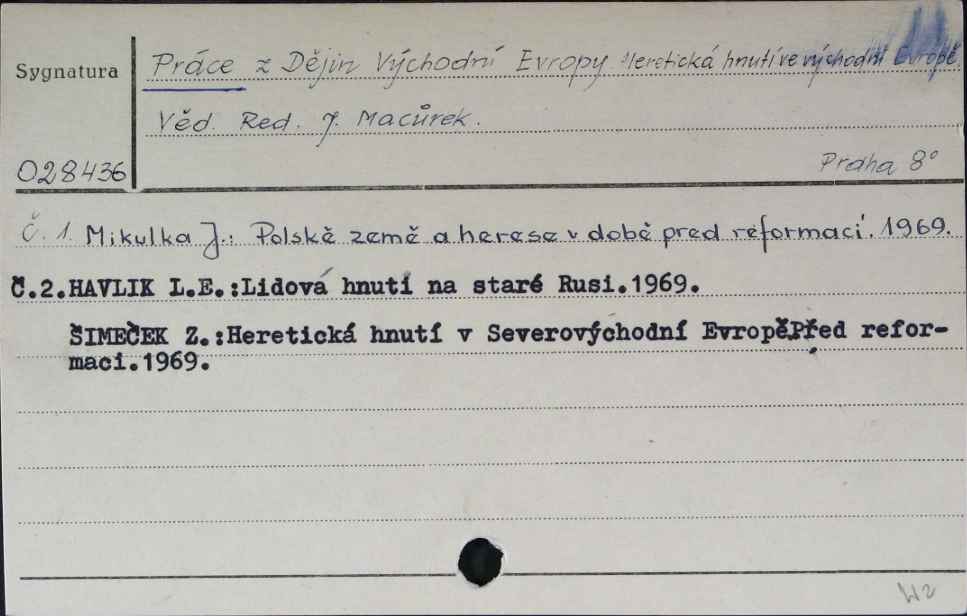 Sygnatura
Práce z Dějin Východní Evropy. Heretická hnutí ve východní Evropě.
Věd. Red. J. Macůrek.
028436
Praha 8°
Č. 1. Mikulka J.: Polskě země a herese v době pred reformací. 1969.
Č.2.HAVLIK L.E.:Lidová hnutí na staré Rusi.1969.
ŠIMEČEK Z.:Heretická hnutí v Severovýchodní EvropěPřed refor-
maci.1969.